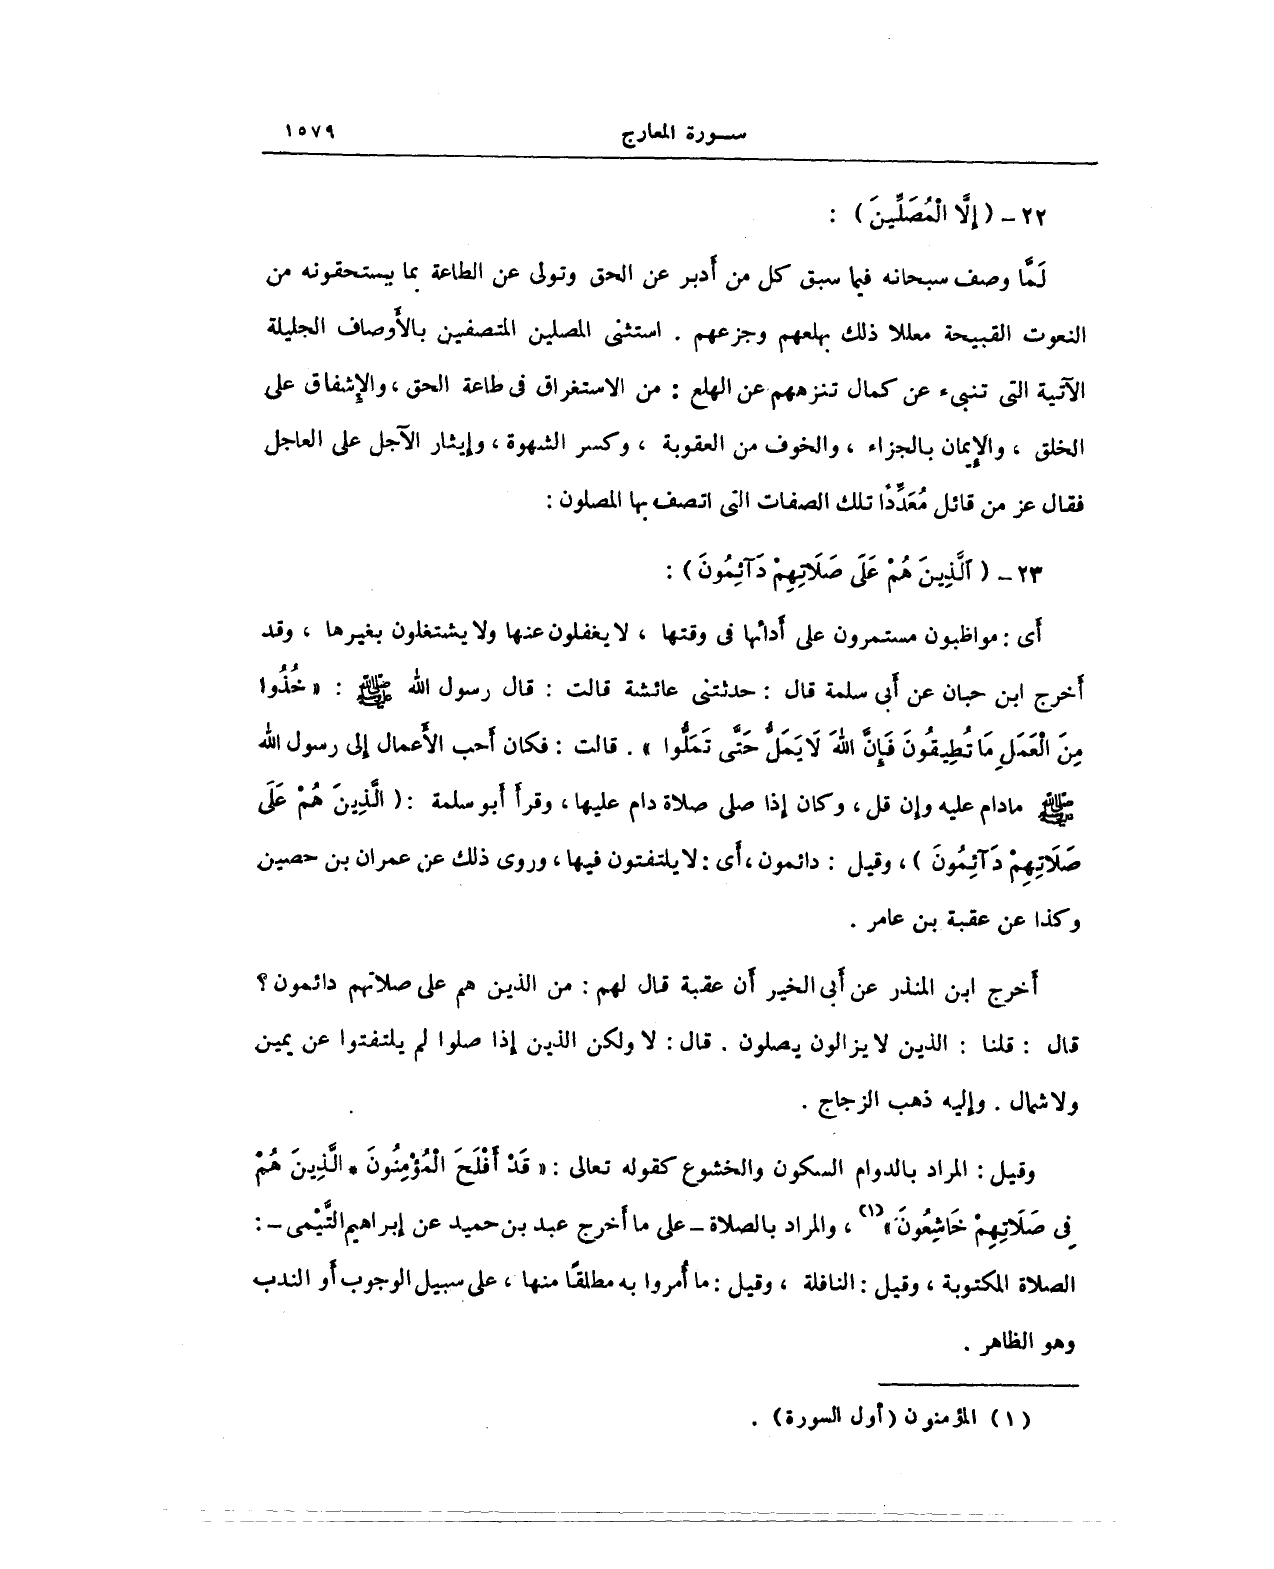 سورة المعارج ١٥٧٩
٢٢ - (إِلَّا الْمُصَلِّينَ) :
لَمَّا وصف سبحانه فيما سبق كل من أدبر عن الحق وتولى عن الطاعة بما يستحقونه من
النعوت القبيحة معللا ذلك بهلعهم وجزعهم . استثنى المصلين المتصفين بالأَوصاف الجليلة
الآتية التى تنبىء عن كمال تنزههم عن الهلع : من الاستغراق فى طاعة الحق ، والإِشفاق على
الخلق ، والإِيمان بالجزاء ، والخوف من العقوبة ، وكسر الشهوة ، وإيثار الآجل على العاجل
فقال عز من قائل مُعَدِّدًا تلك الصفات التى اتصف بها المصلون :
٢٣ - ( الَّذِينَ هُمْ عَلَى صَلَاتِهِمْ دَآئِمُونَ ) :
أَى : مواظبون مستمرون على أَدائها فى وقتها ، لا يغفلون عنها ولا يشتغلون بغيرها ، وقد
أَخرج ابن حبان عن أَبى سلمة قال : حدثتنى عائشة قالت : قال رسول الله ﷺ : « خُذُوا
مِنَ الْعَمَلِ مَا تُطِيقُونَ فَإِنَّ اللهَ لَا يَمَلُّ حَتَّى تَمَلُّوا » . قالت : فكان أَحب الأَعمال إلى رسول الله
ﷺ مادام عليه وإن قل ، وكان إذا صلى صلاة دام عليها ، وقرأَ أَبو سلمة : ( الَّذِينَ هُمْ عَلَى
صَلَاتِهِمْ دَآئِمُونَ ) ، وقيل : دائمون ، أَى : لا يلتفتون فيها ، وروى ذلك عن عمران بن حصين
وكذا عن عقبة بن عامر .
أَخرج ابن المنذر عن أَبى الخير أَن عقبة قال لهم : من الذين هم على صلاتهم دائمون ؟
قال : قلنا : الذين لا يزالون يصلون . قال : لا ولكن الذين إذا صلوا لم يلتفتوا عن يمين
ولا شمال . وإليه ذهب الزجاج .
وقيل : المراد بالدوام السكون والخشوع كقوله تعالى : « قَدْ أَفْلَحَ الْمُؤْمِنُونَ * الَّذِينَ هُمْ
فِى صَلَاتِهِمْ خَاشِعُونَ »(١) ، والمراد بالصلاة - على ما أَخرج عبد بن حميد عن إبراهيم التَّيْمى - :
الصلاة المكتوبة ، وقيل : النافلة ، وقيل : ما أُمروا به مطلقًا منها ، على سبيل الوجوب أَو الندب
وهو الظاهر .
(١) المؤمنون (أول السورة) .